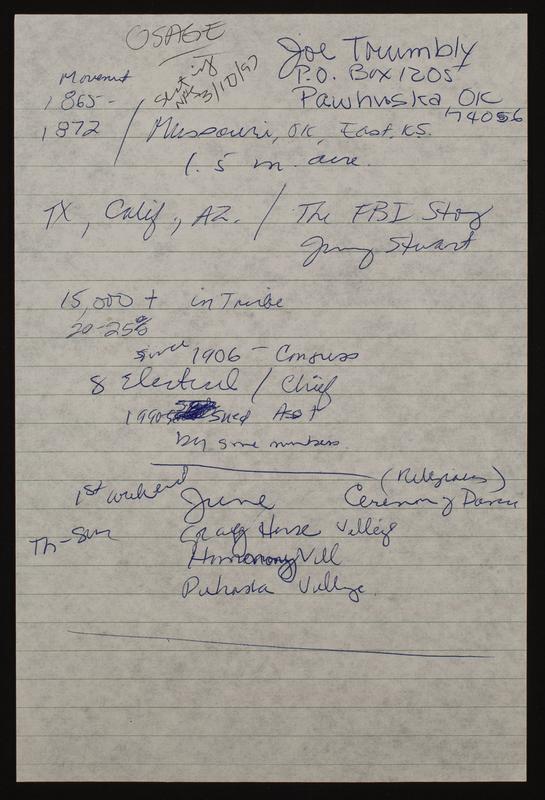 OSAGE
Joe Trumbly
P.O. Box 1205
Pawhuska, OK
74056
3/10/97
Movement
1865-
1872 / Missouri, OK, East, KS.
1.5 m. acre.
TX, Calif, AZ. / The FBI Story
Jimmy Stuart
15,000 + in Tribe
20-25%
since 1906 - Congress
8 Elected / Chief
1990s Sued
by some members
(Religious)
1st weekend June Ceremony Dance
Th-Sun Grayg Horse Village
Homonony Vill
Puhaska Village.